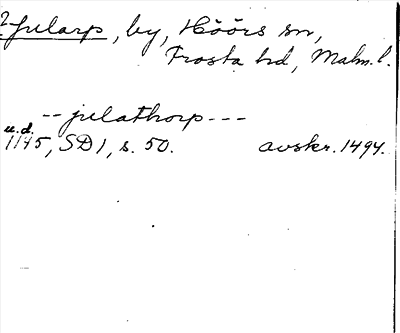 ? Jularp, by, Höörs sn,
Frosta hd, Malm. l.
-- julathorp ---
u.d.
1145, SD 1, s. 50. avskr. 1494.